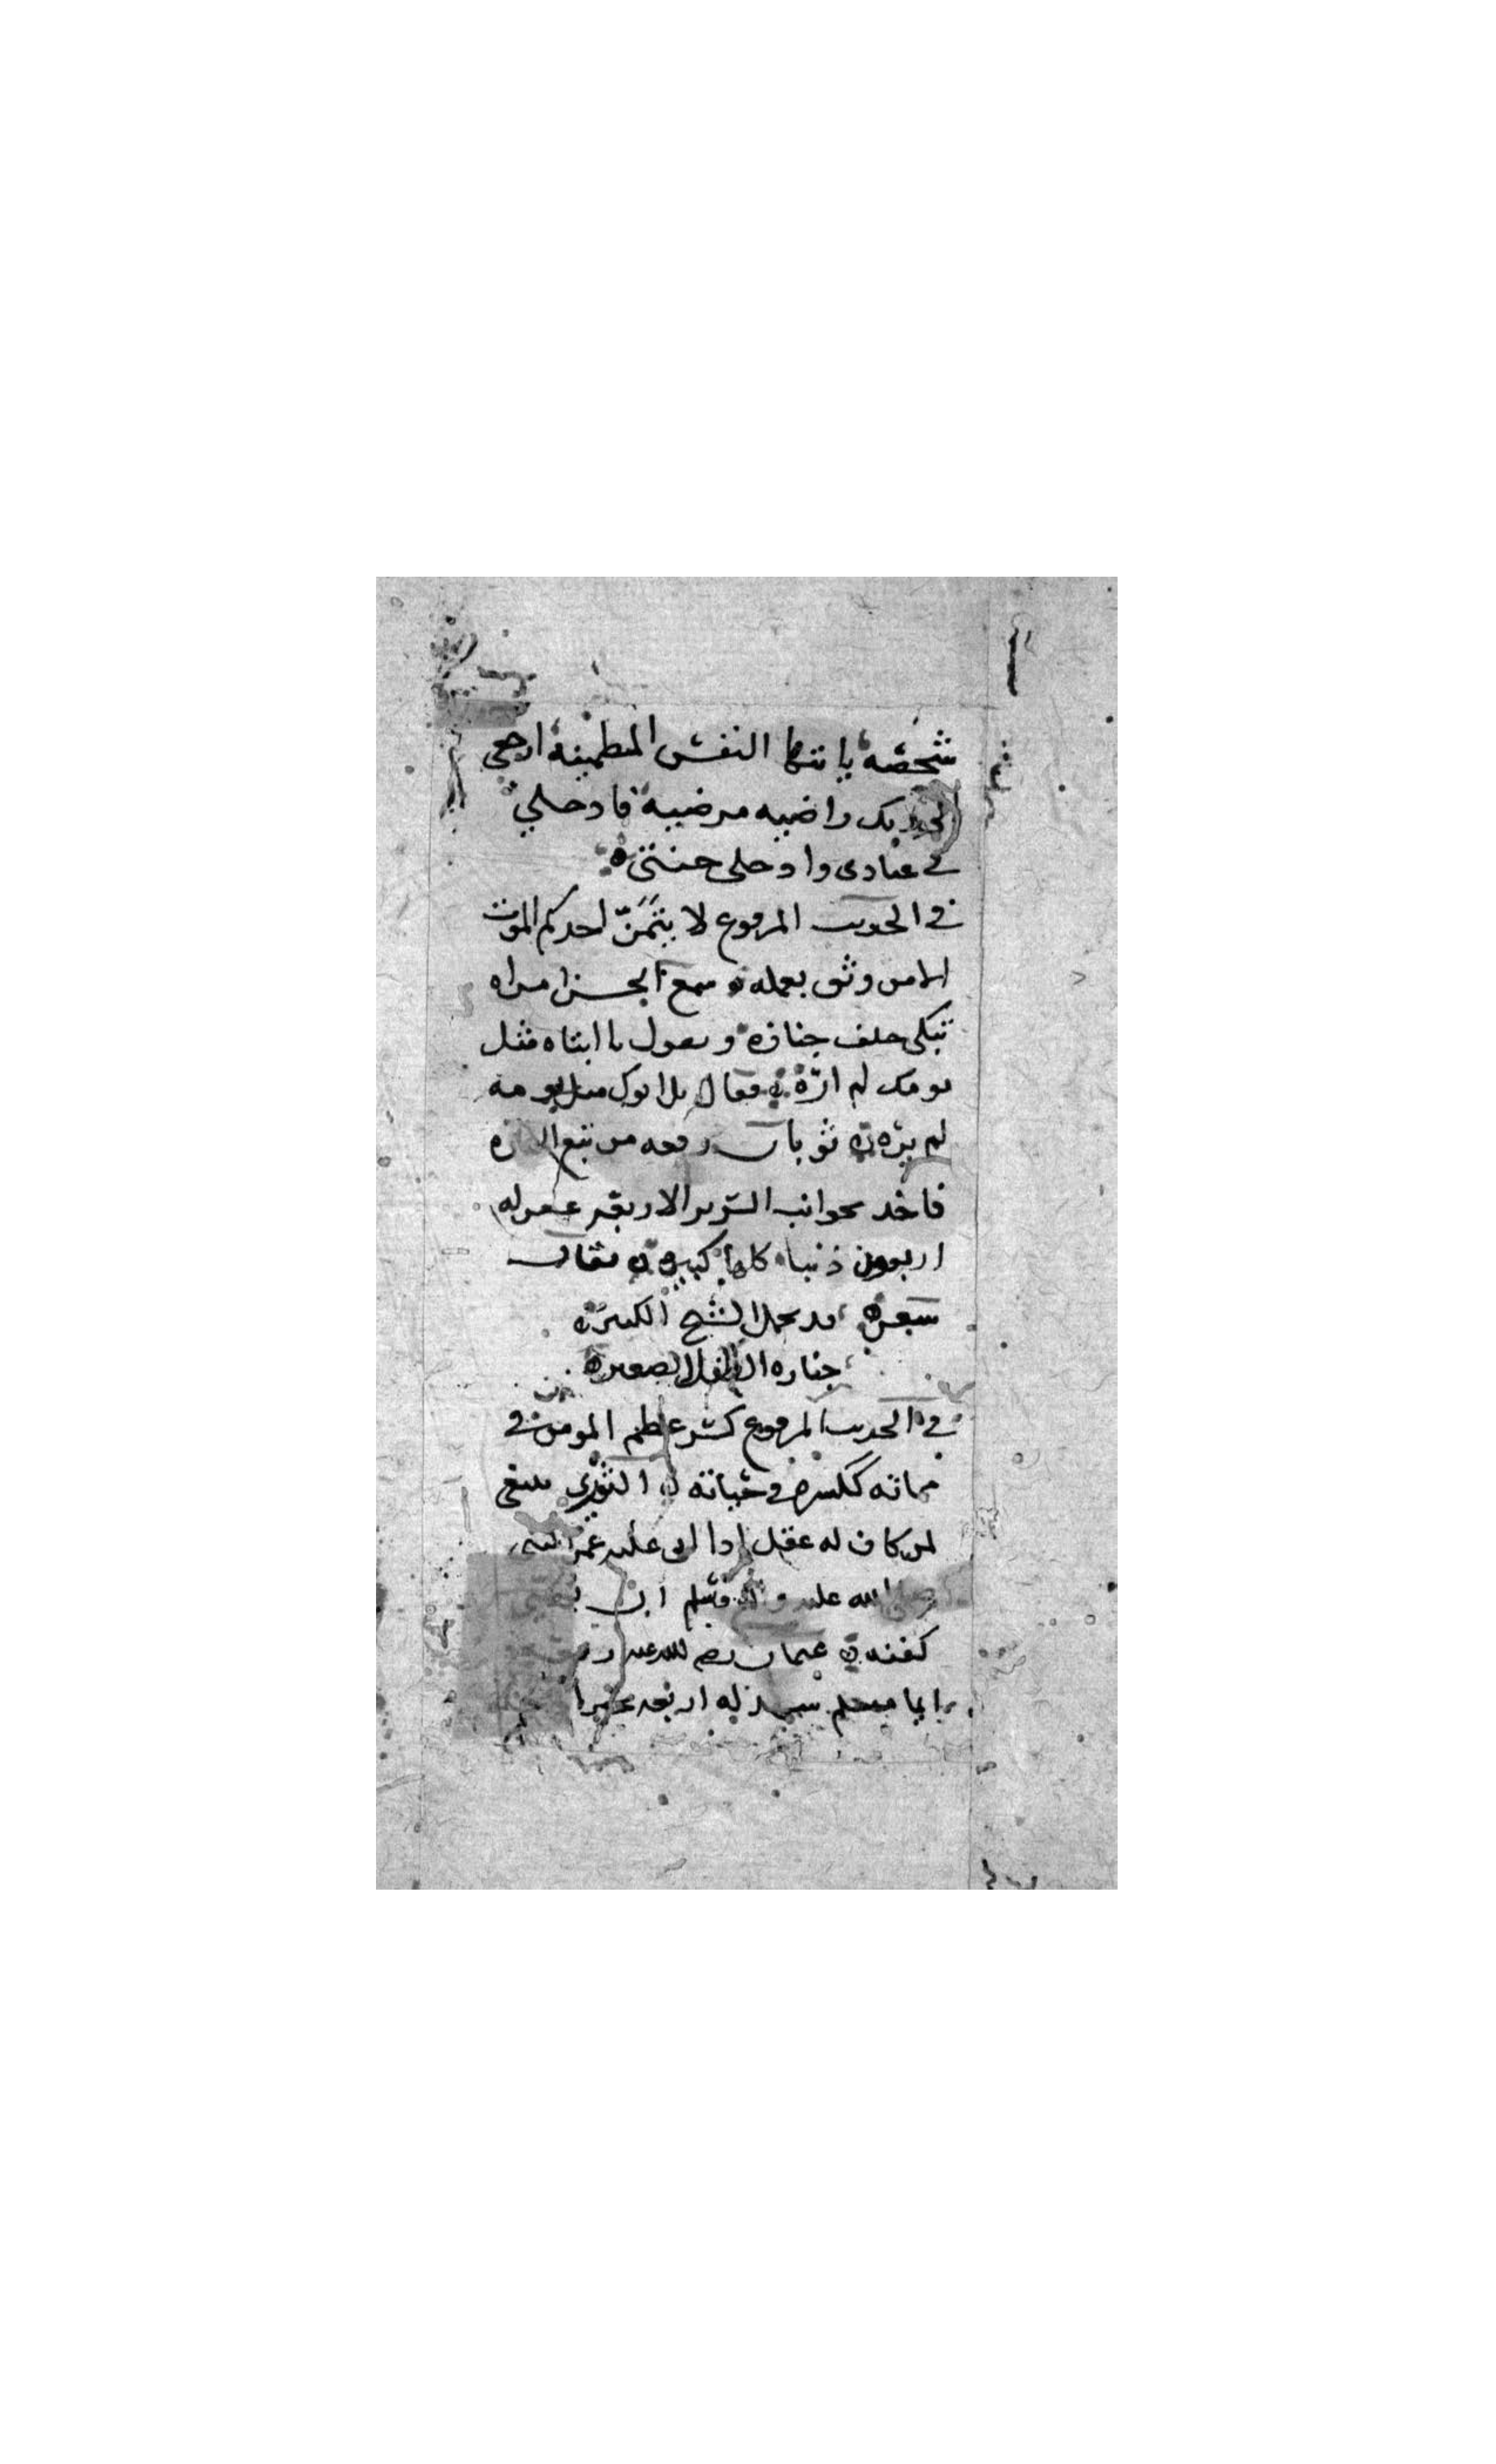 شخصه يا يتها النفس المطمينه ارجعي
الى ربك راضيه مرضيه فادخلي
في عبادى وادخلى جنتى ه
في الحديث المرفوع لا يتمنّ احدكم الموت
الا من وثق بعمله ه سمع الحسن امراه
تبكى خلف جنازة وتقول يا ابتاه مثل
يومك لم اره ه فقال بل ابوك مثل يومه
لم يره ه ثوبان رفعه من تبع الجنازه
فاخذ بجوانب السرير الاربع غفر له
اربعون ذنبا كلها كبيره ه يقال
سعره قد يحمل الشيخ الكبير ه
جنازه الطفل الصغير ه
في الحديث المرفوع كسر عظم المومن في
مماته ككسره في حياته ه الثورى ينبغى
لمن كان له عقل اذا اتى عليه عمر النبي
صلى الله عليه وسلم ان
كفنه ه عثمان رضي الله عنه
ايما مسلم شهد له اربعه بخير